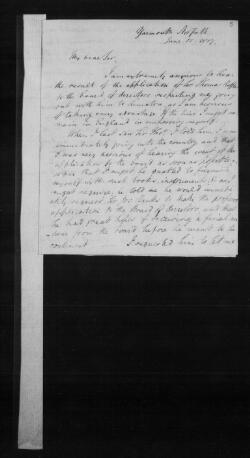 Yarmouth Norfolk
June 15. 1817.
My dear Sir,
I am extremely anxious to hear
the result of the application of Sir Thomas Raffles
to the board of directors respecting my going
out with him to Sumatra as I am desirous
of taking every advantage of the time I might re-
main in England in
When I last saw Sir Thos. I told him I was
immediately going into the country, and that
I was very desirous of hearing the result of the
application to the board as soon as possible,
order that I might be enabled to furnish
myself with such books, instruments &c as I
might require, he told me he would immedi-
ately request Sir Jos. Banks to make the proposed
application to the Board of Directors and that
he had great hopes of receiving a favorable an-
swer from the board before he went to the
continent I requested him to let me